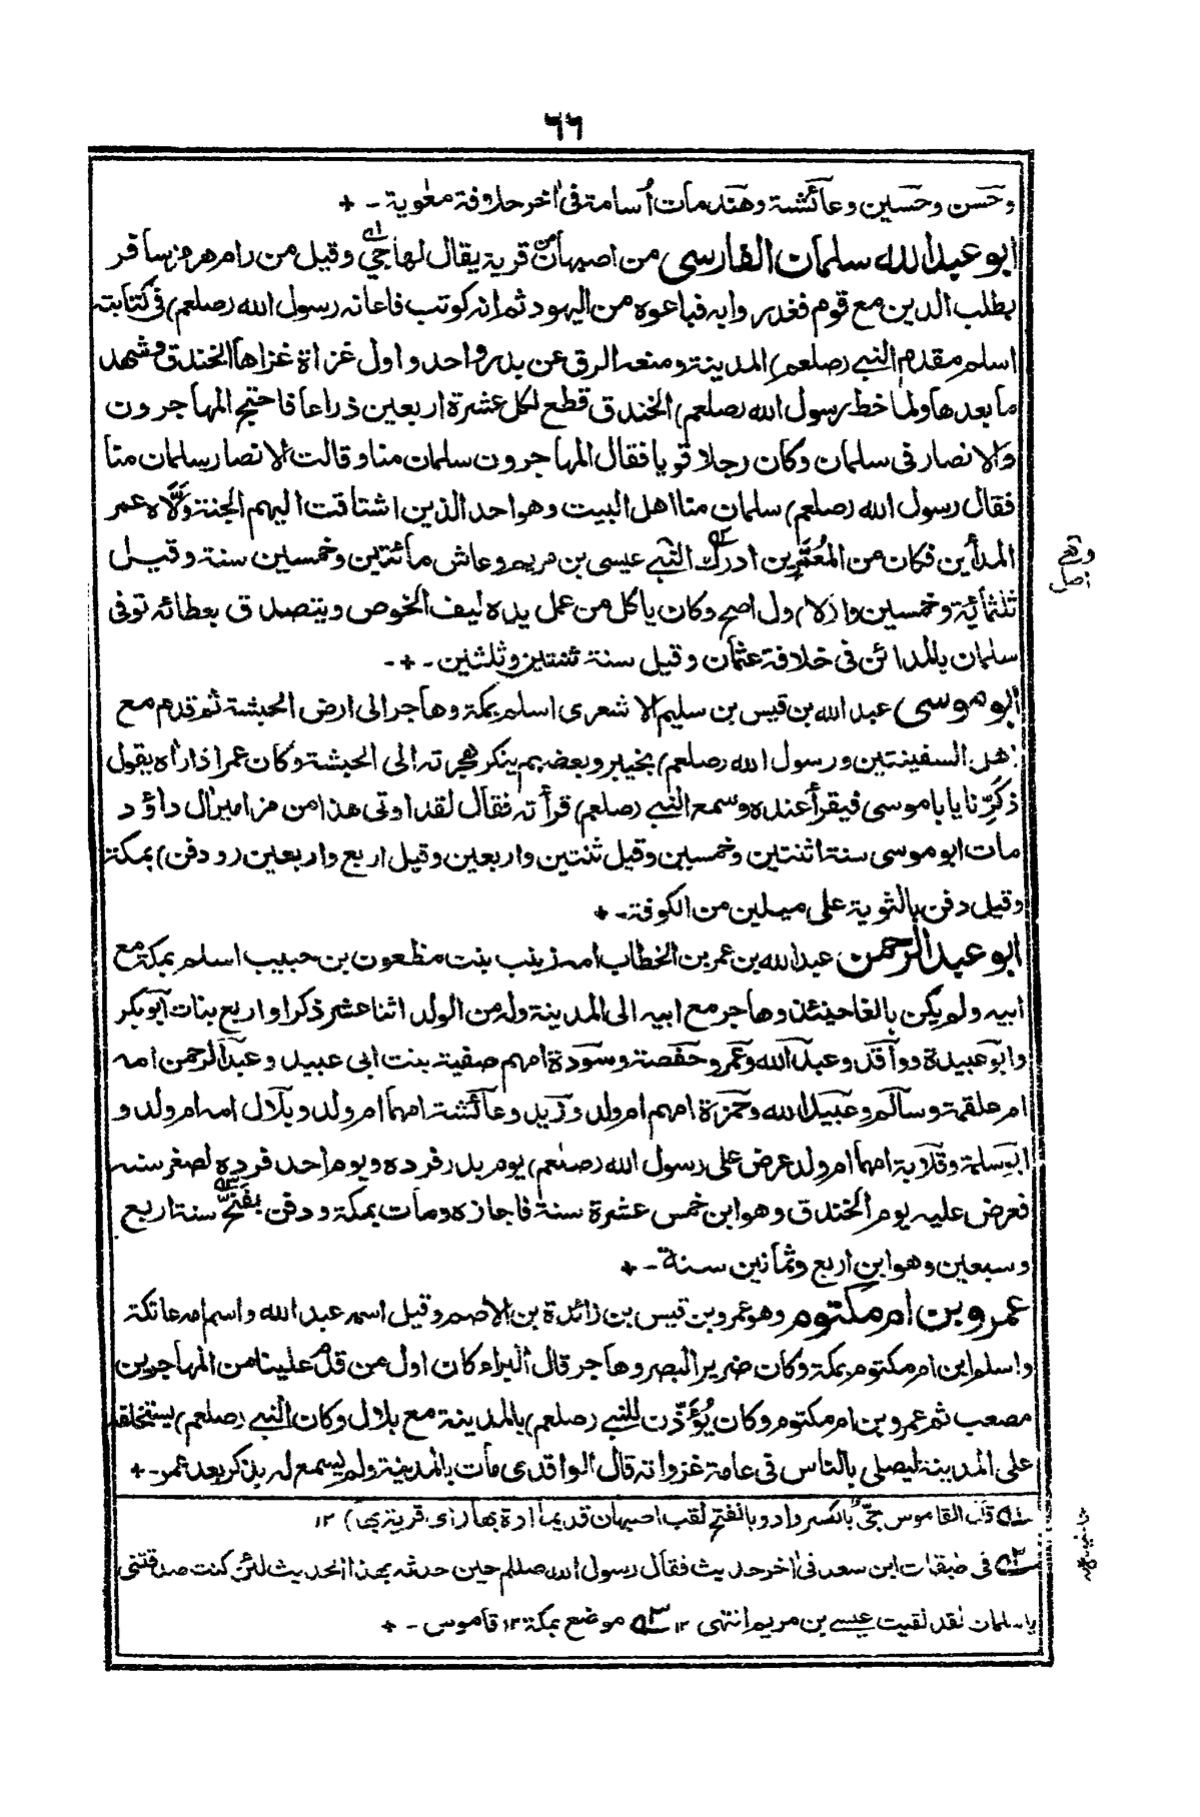 ٦٦
وحسن وحسين وعائشة وهند مات أسامة فى اخر خلافة معوية -+
ابو عبد الله سلمان الفارسى من اصبهان من قرية يقال لها جي وقيل من رامهرمز سافر
يطلب الدين مع قوم فغدروا به فباعوه من اليهود ثم انه كوتب فاعانه رسول الله (صلعم) فى كتابته
اسلم مقدم النبي (صلعم) المدينة ومنعه الرق عن بدر واحد واول غزاة غزاها الخندق وشهد
ما بعدها ولما خط رسول الله (صلعم) الخندق قطع لكل عشرة اربعين ذراعا فاحتج المهاجرون
والانصار فى سلمان وكان رجلا قويا فقال المهاجرون سلمان منا وقالت الانصار سلمان منا
فقال رسول الله (صلعم) سلمان منا اهل البيت وهو احد الذين اشتاقت اليهم الجنة ولّاه عمر
المدأين فكان من المُعَمَّرين ادرك النبي عيسى بن مريم وعاش مائتين وخمسين سنة وقيل
ثلثمائة وخمسين و(الا)ول اصح وكان يأكل من عمل يده ليف الخوص ويتصدق بعطائه توفى
سلمان بالمدائن فى خلافة عثمان وقيل سنة ثنتين وثلثين -+-
ابو موسى عبد الله بن قيس بن سليم الاشعرى اسلم بمكة وهاجر الى ارض الحبشة ثم قدم مع
اهل السفينتين ورسول الله (صلعم) بخيبر وبعضهم ينكر هجرته الى الحبشة وكان عمر اذا راه يقول
ذكِّرنا يا باموسى فيقرأ عنده وسمع النبي (صلعم) قرأته فقال لقد اوتى هذا من مزامير ال داؤد
مات ابو موسى سنة اثنتين وخمسين وقيل ثنتين واربعين وقيل اربع واربعين (ودفن) بمكة
وقيل دفن بالثوية على ميلين من الكوفة -+
ابو عبد الرحمن عبد الله بن عمر بن الخطاب امه زينب بنت مظعون بن حبيب اسلم بمكة مع
ابيه ولم يكن بالغا حينئذ وهاجر مع ابيه الى المدينة وله من الولد اثنا عشر ذكرا واربع بنات ابو بكر
وابو عبيدة وواقد وعبد الله وعمر وحفصة وسودة امهم صفية بنت ابى عبيد وعبد الرحمن امه
ام علقمة وسالم وعبيد الله وحمزة امهم ام ولد وزيد وعائشة امهما ام ولد وبلال امه ام ولد و
ابو سلمة وقلابة امهما ام ولد عرض على رسول الله (صلعم) يوم بدر فرده ويوم احد فرده لصغر سنه
فعرض عليه يوم الخندق وهو ابن خمس عشرة سنة فاجازه ومات بمكة ودفن بفخ سنة اربع
وسبعين وهو ابن اربع وثمانين سنة -+
عمرو بن ام مكتوم وهو عمرو بن قيس بن زائدة بن الاصم وقيل اسمه عبد الله واسم امه عاتكة
واسلم ابن ام مكتوم بمكة وكان ضرير البصر وهاجر قال البراء كان اول من قدم علينا من المهاجرين
مصعب ثم عمرو بن ام مكتوم وكان يُؤَذّن للنبي (صلعم) بالمدينة مع بلال وكان النبي (صلعم) يستخلفه
على المدينة ليصلى بالناس فى عامة غزواته قال الواقدى مات بالمدينة ولم يسمع له بذكر بعد عمر -+
١ قال القاموس جيّ بالكسر واد وبالفتح لقب اصبهان قديما اوة بها (اى قرية بها) ١٢
٢ فى طبقات ابن سعد فى اخر حديث فقال رسول الله صللم حين حدثه بهذا الحديث لئن كنت صدقتنى
يا سلمان لقد لقيت عيسى بن مريم انتهى ١٢ ٣ موضع بمكة ١٢ قاموس -+